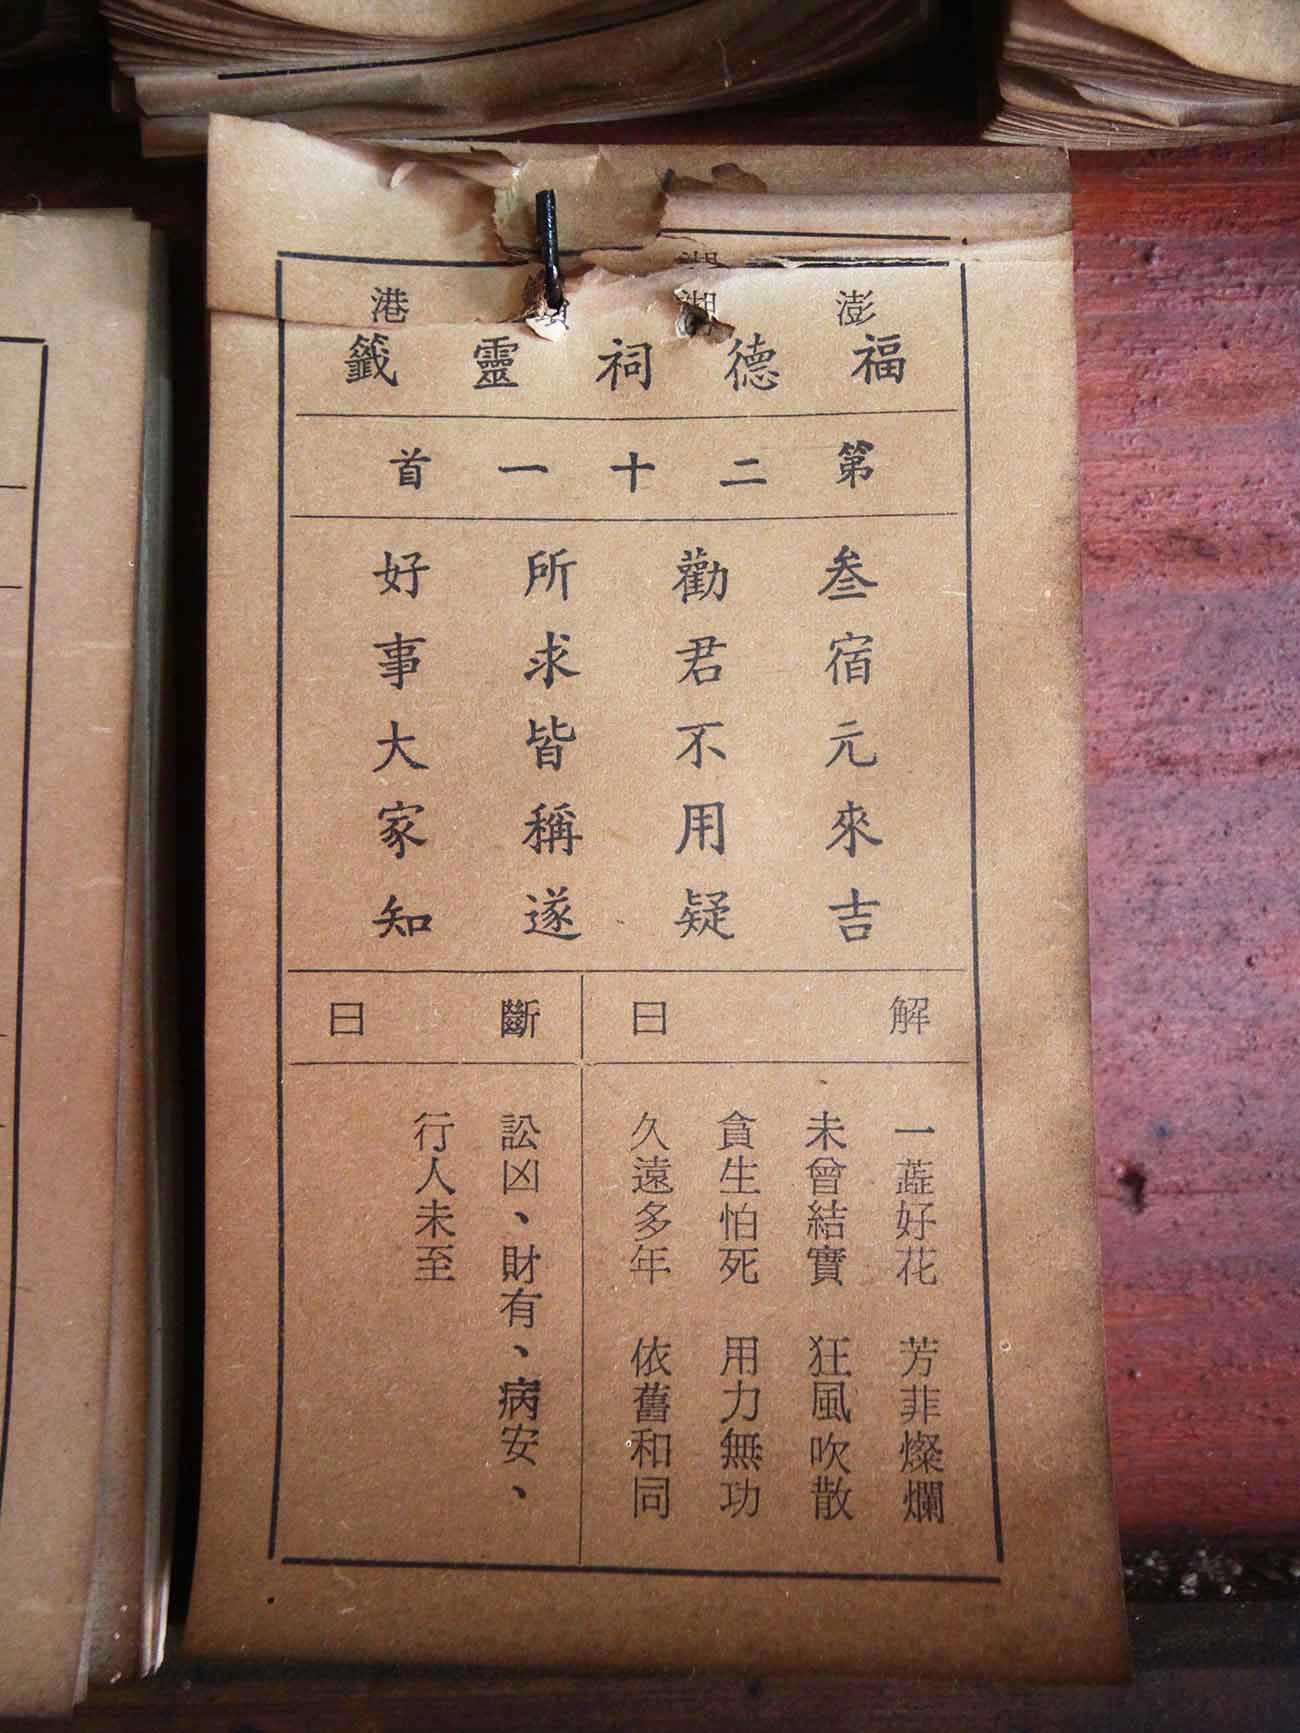 澎湖 港
福德祠靈籤
第二十一首
叁宿元來吉
勸君不用疑
所求皆稱遂
好事大家知
解曰
一蕋好花 芳非燦爛
未曾結實 狂風吹散
貪生怕死 用力無功
久遠多年 依舊和同
斷曰
訟凶、財有、病安、
行人未至